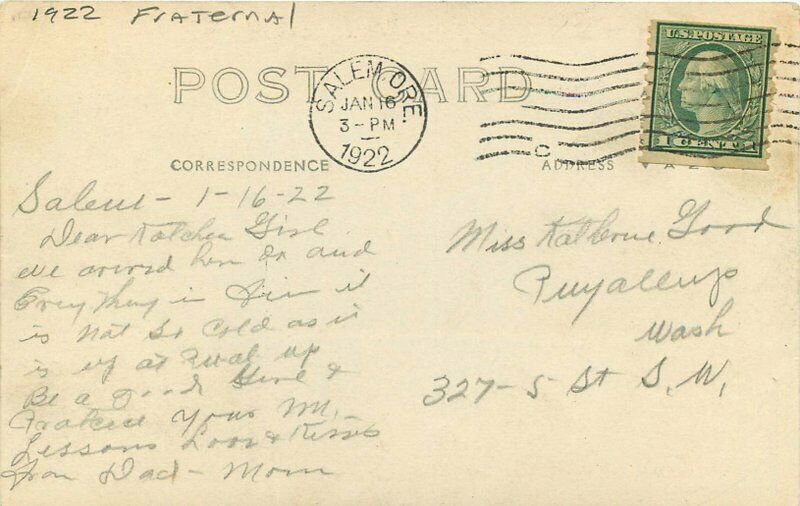 1922 Fraternal
POST CARD
SALEM, ORE.
JAN 16
3-PM
1922
U.S. POSTAGE
1 CENT
CORRESPONDENCE
ADDRESS
Salem - 1-16-22
Dear Girl
we here and
Every thing in it
is not so cold as it
is up at up
Be a good Girl &
Your
Lessons & Kisses
from Dad - Mom
Miss Katherine Good
Puyallup
Wash
327-5 St S.W.